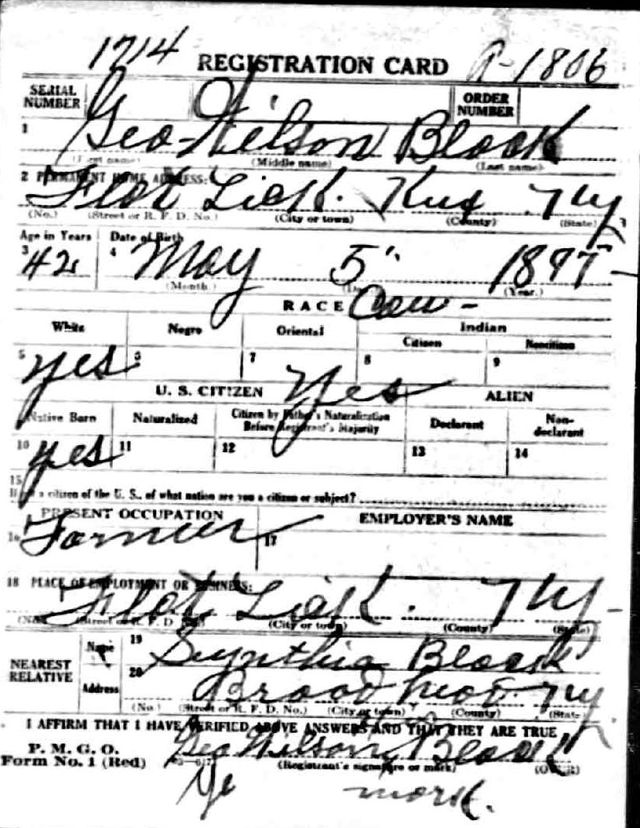 1714 REGISTRATION CARD A-1806
SERIAL NUMBER ORDER NUMBER
1 Geo Wilson Black
(First name) (Middle name) (Last name)
2 PERMANENT HOME ADDRESS:
Flat Lick. Knx. Ky
(No.) (Street or R. F. D. No.) (City or town) (County) (State)
Age in Years Date of Birth
3 42 4 May 5" 1897
(Month.) (Year.)
RACE Cau -
White Negro Oriental Indian
Citizen Noncitizen
5 yes 6 7 8 9
U. S. CITIZEN Yes ALIEN
Native Born Naturalized Citizen by Father's Naturalization Before Registrant's Majority Declarant Non-declarant
10 yes 11 12 13 14
15 a citizen of the U. S., of what nation are you a citizen or subject?
PRESENT OCCUPATION EMPLOYER'S NAME
16 Farmer 17
18 PLACE OF EMPLOYMENT OR BUSINESS:
Flat Lick. Ky -
(No.) (Street or R. F. D. No.) (City or town) (County) (State)
NEAREST RELATIVE
Name 19 Synthia Black
Address 20 Ky
(No.) (Street or R. F. D. No.) (City or town) (County) (State)
I AFFIRM THAT I HAVE VERIFIED ABOVE ANSWERS AND THAT THEY ARE TRUE
P. M. G. O.
Form No. 1 (Red) Geo Wilson Black
(Registrant's signature or mark) (OVER)
mark.